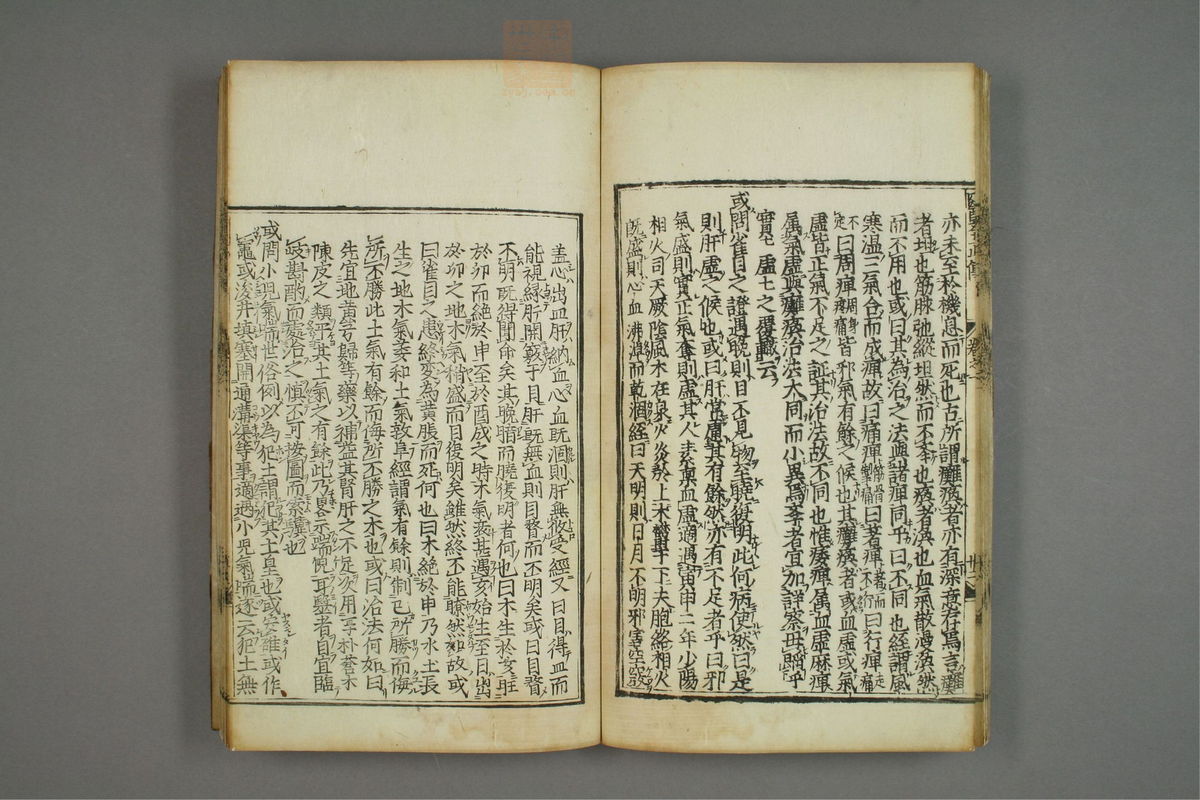 亦未至於機息而死也古所謂癱瘓者亦有深意存焉言癱
者坦也筋脉弛縱坦然而不擧也瘓者渙也血氣散漫渙然
而不用也或曰其為治之法與諸痺同乎曰不同也經謂風
寒温三氣合而成痺故曰痛痺筋骨掣痛曰著痺著而不行曰行痺走痛
不定曰周痺周身疼痛皆邪氣有餘之候也其癱瘓者或血虛或氣
虛皆正氣不足之証其治法故不同也惟痿痺属血虛麻痺
属氣虛與癱瘓治法大同而小異焉孝者宜加詳察毋蹈乎
實〻虛〻之覆轍云
或問雀目之證遇晚則目不見物至曉復明此何病使然曰是
則肝虛之候也或曰肝常慮其有餘然亦有不足者乎曰邪
氣盛則實正氣奪則虛其人素稟血虛適遇寅申二年少陽
相火司天厥陰風木在泉火炎於上木鬱于下夫胞絡相火
既盛則心血沸淖而乾涸經曰天明則日月不明邪害空竅
蓋心出血肝納血心血既涸則肝無所受經又曰目得血而
能視緣肝開竅于目肝既無血則目瞀而不明矣或曰目瞀
不明既得聞命矣其晚暗而曉復明者何也曰木生於亥旺
於卯而絕於申至於酉戌之時木氣衰甚遇亥始生至日出
於卯之地木氣稍盛而目復明矣雖然終不能瞭然如故或
曰雀目之患終变為黃脹而死何也曰木絕於申乃水土長
生之地木氣萎和土氣敦阜經謂氣有餘則制己所勝而侮
所不勝此土氣有餘而侮所不勝之木也或曰治法何如曰
先宜地黃芎歸等藥以補益其腎肝之不足次用厚朴蒼术
陳皮之類平其土氣之有餘此乃畧示端倪耳醫者自宜臨
歧斟酌而處治之慎不可按圖而索驥也
或問小児氣喘世俗例以為犯土謂犯其土皇也或安確或作
竈或浚井填塞開通溝渠等事適遇小児氣喘遂云犯土無